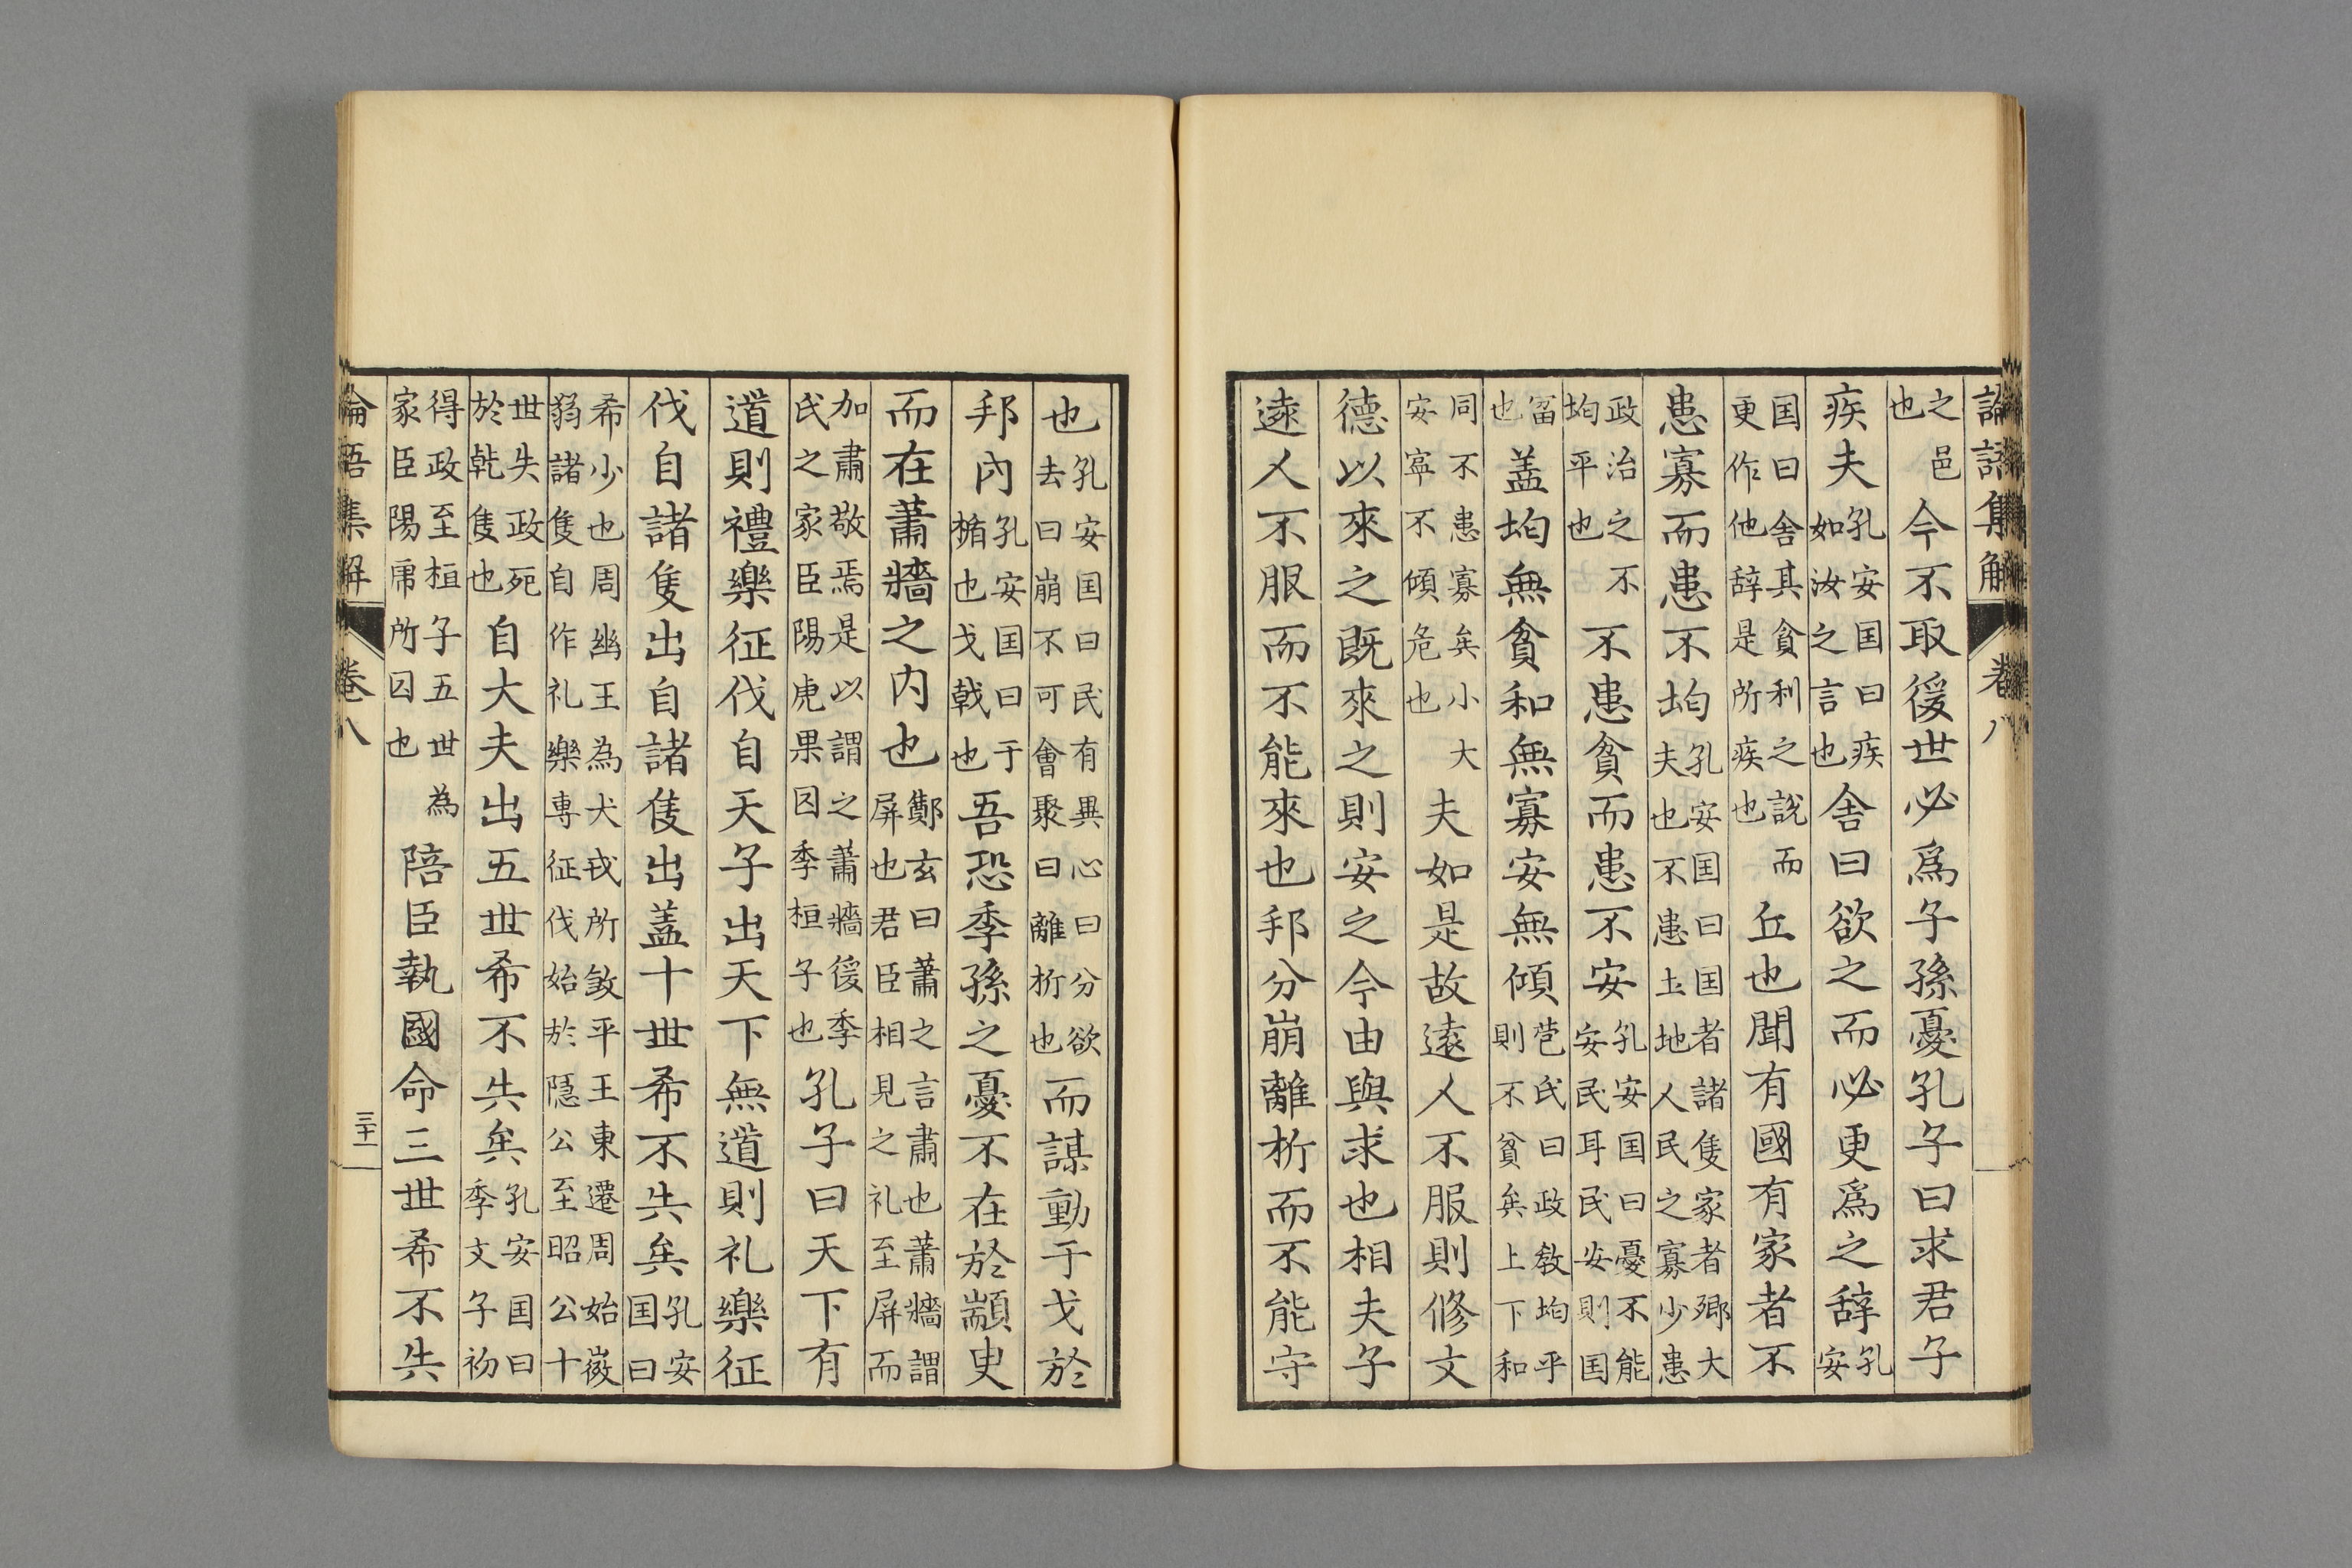 論語集解 卷八
之邑也今不取後世必爲子孫憂孔子曰求君子
疾夫孔安国曰疾如汝之言也舍曰欲之而必更爲之辞孔安
国曰舍其貪利之說而更作他辞是所疾也丘也聞有國有家者不
患寡而患不均孔安国曰国者諸侯家者卿大夫也不患土地人民之寡少患
政治之不均平也不患貧而患不安孔安国曰憂不能安民耳民安則国
冨也盖均無貧和無寡安無傾苞氏曰政教均平則不貧矣上下和
同不患寡矣小大安寧不傾危也夫如是故遠人不服則修文
德以來之既來之則安之今由與求也相夫子
遠人不服而不能來也邦分崩離析而不能守
也孔安国曰民有異心曰分欲去曰崩不可會聚曰離析也而謀動于戈於
邦内孔安国曰于楯也戈戟也吾恐季孫之憂不在於顓臾
而在蕭牆之内也鄭玄曰蕭之言肅也蕭牆謂屏也君臣相見之礼至屏而
加肅敬焉是以謂之蕭牆後季氏之家臣陽虎果囚季桓子也孔子曰天下有
道則禮樂征伐自天子出天下無道則礼樂征
伐自諸侯出自諸侯出盖十世希不失矣孔安国曰
希少也周幽王為犬戎所敘平王東遷周始微弱諸侯自作礼樂專征伐始於隱公至昭公十
世失政死於乹侯也自大夫出五世希不失矣孔安国曰季文子初
得政至桓子五世為家臣陽虎所囚也陪臣執國命三世希不失
論語集解 卷八 三十一